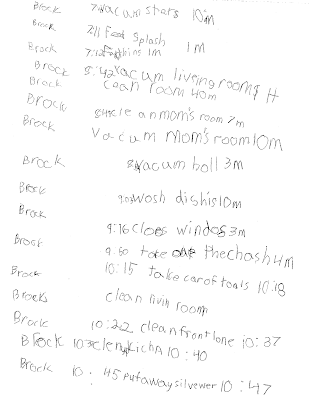 Brock 7: vacum stars 10m
Brock 7:11 Feed Splash 1m
Brock 7:12 1m
Brock 8:42 vacum liveing room
Brock cean room 40m
Brock clean mom's room 7m
Brock vacum mom's room 10m
Brock vacum boll 3m
Brock wosh dishis 10m
Brock
9:16 cloes windos 3m
Brock 9:50 take the chash 4m
Brock 10:15 take car of tonls 10:18
Brocks clean livin room
Brock 10:22 clean front lone 10:37
Brock kichA 10:40
Brock 10:45 put away silvewer 10:47